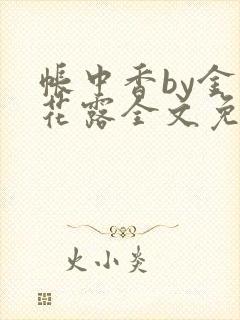 帐中香by金
花露全文免
火小炎